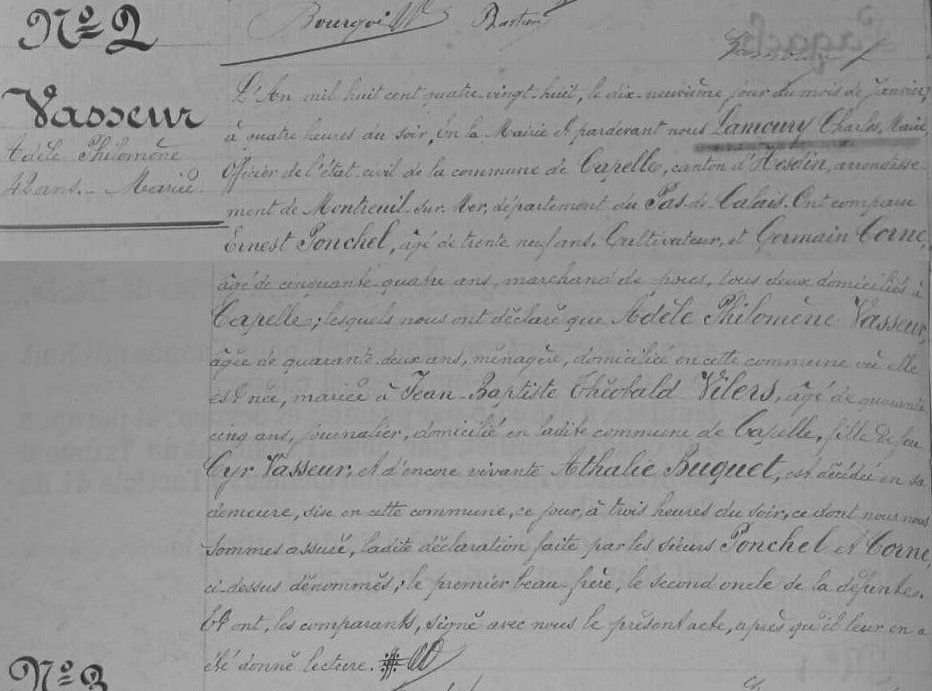 Nº 2
Bourgois Bastien
Vasseur
Adèle Philomène
42 ans. - Mariée.
L'An mil huit cent quatre-vingt-huit, le dix-neuvième jour du mois de Janvier,
à quatre heures du soir, En la Mairie et pardevant nous Lamoury Charles, Marie,
Officier de l'état-civil de la commune de Capelle, canton d'Hesdin, arrondisse-
ment de Montreuil-sur-Mer, département du Pas-de-Calais. Ont comparu
Ernest Ponchel, âgé de trente neuf ans, Cultivateur, et Germain Corne,
âgé de cinquante-quatre ans, marchand de porcs, tous deux domiciliés à
Capelle; lesquels nous ont déclaré que Adèle Philomène Vasseur,
âgée de quarante-deux ans, ménagère, domiciliée en cette commune où elle
est née, mariée à Jean-Baptiste Théobald Vilers, âgé de quarante
cinq ans, journalier, domicilié en ladite commune de Capelle, fille de feu
Cyr Vasseur, et d'encore vivante Athalie Buquet, est décédée en sa
demeure, sise en cette commune, ce jour, à trois heures du soir, ce dont nous nous
sommes assuré, ladite déclaration faite par les sieurs Ponchel et Corne,
ci-dessus dénommés; le premier beau-frère, le second oncle de la défunte.
Et ont, les comparants, signé avec nous le présent acte, après qu'il leur en a
été donné lecture.
Nº 3